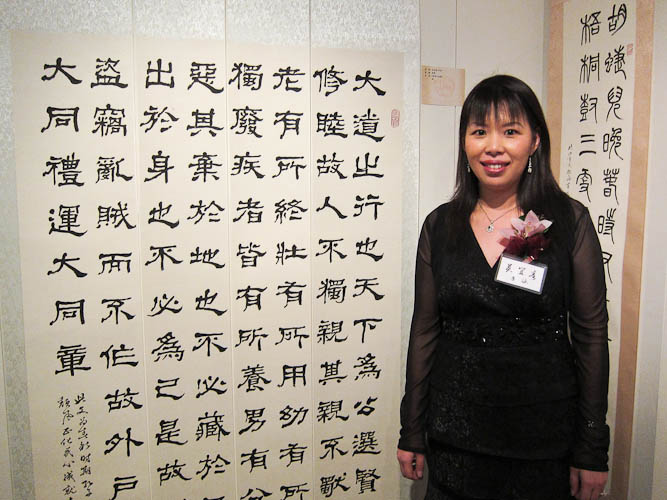 胡蝶兒晚春時
梧桐樹三更
大道之行也天下為公選賢
修睦故人不獨親其親不獨
老有所終壯有所用幼有所
獨廢疾者皆有所養男有分
惡其棄於地也不必藏於
出於身也不必為己是故
盜竊亂賊而不作故外戶
大同禮運大同章
此文為春秋時期孔子